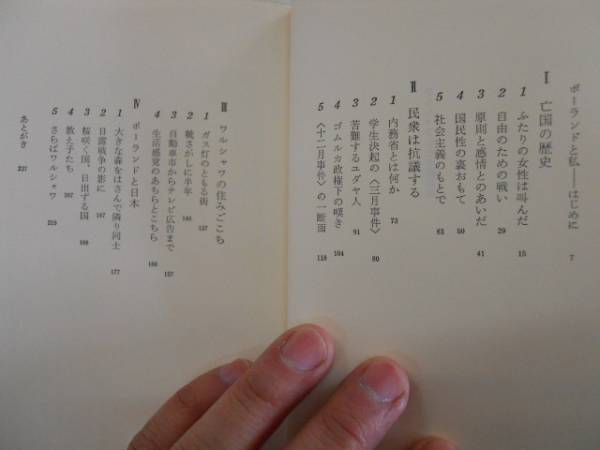 ポーランドと私——はじめに 7
I 亡国の歴史
1 ふたりの女性は叫んだ 15
2 自由のための戦い 29
3 原則と感情とのあいだ 41
4 国民性の裏おもて 50
5 社会主義のもとで 61
II 民衆は抗議する
1 内務省とは何か 73
2 学生決起の〈三月事件〉 80
3 苦難するユダヤ人 91
4 ゴムルカ政権下の嘆き 104
5 〈十二月事件〉の一断面 118
III ワルシャワの住みごこち
1 ガス灯のともる街 137
2 靴さがしに半年
3 自動車市からテレビ広告まで 157
4 生活感覚のあちらとこちら
IV ポーランドと日本
1 大きな森をはさんで隣り同士 177
2 日露戦争の影に 187
3 桜咲く国、日出ずる国
4 教え子たち
5 さらばワルシャワ
あとがき 227